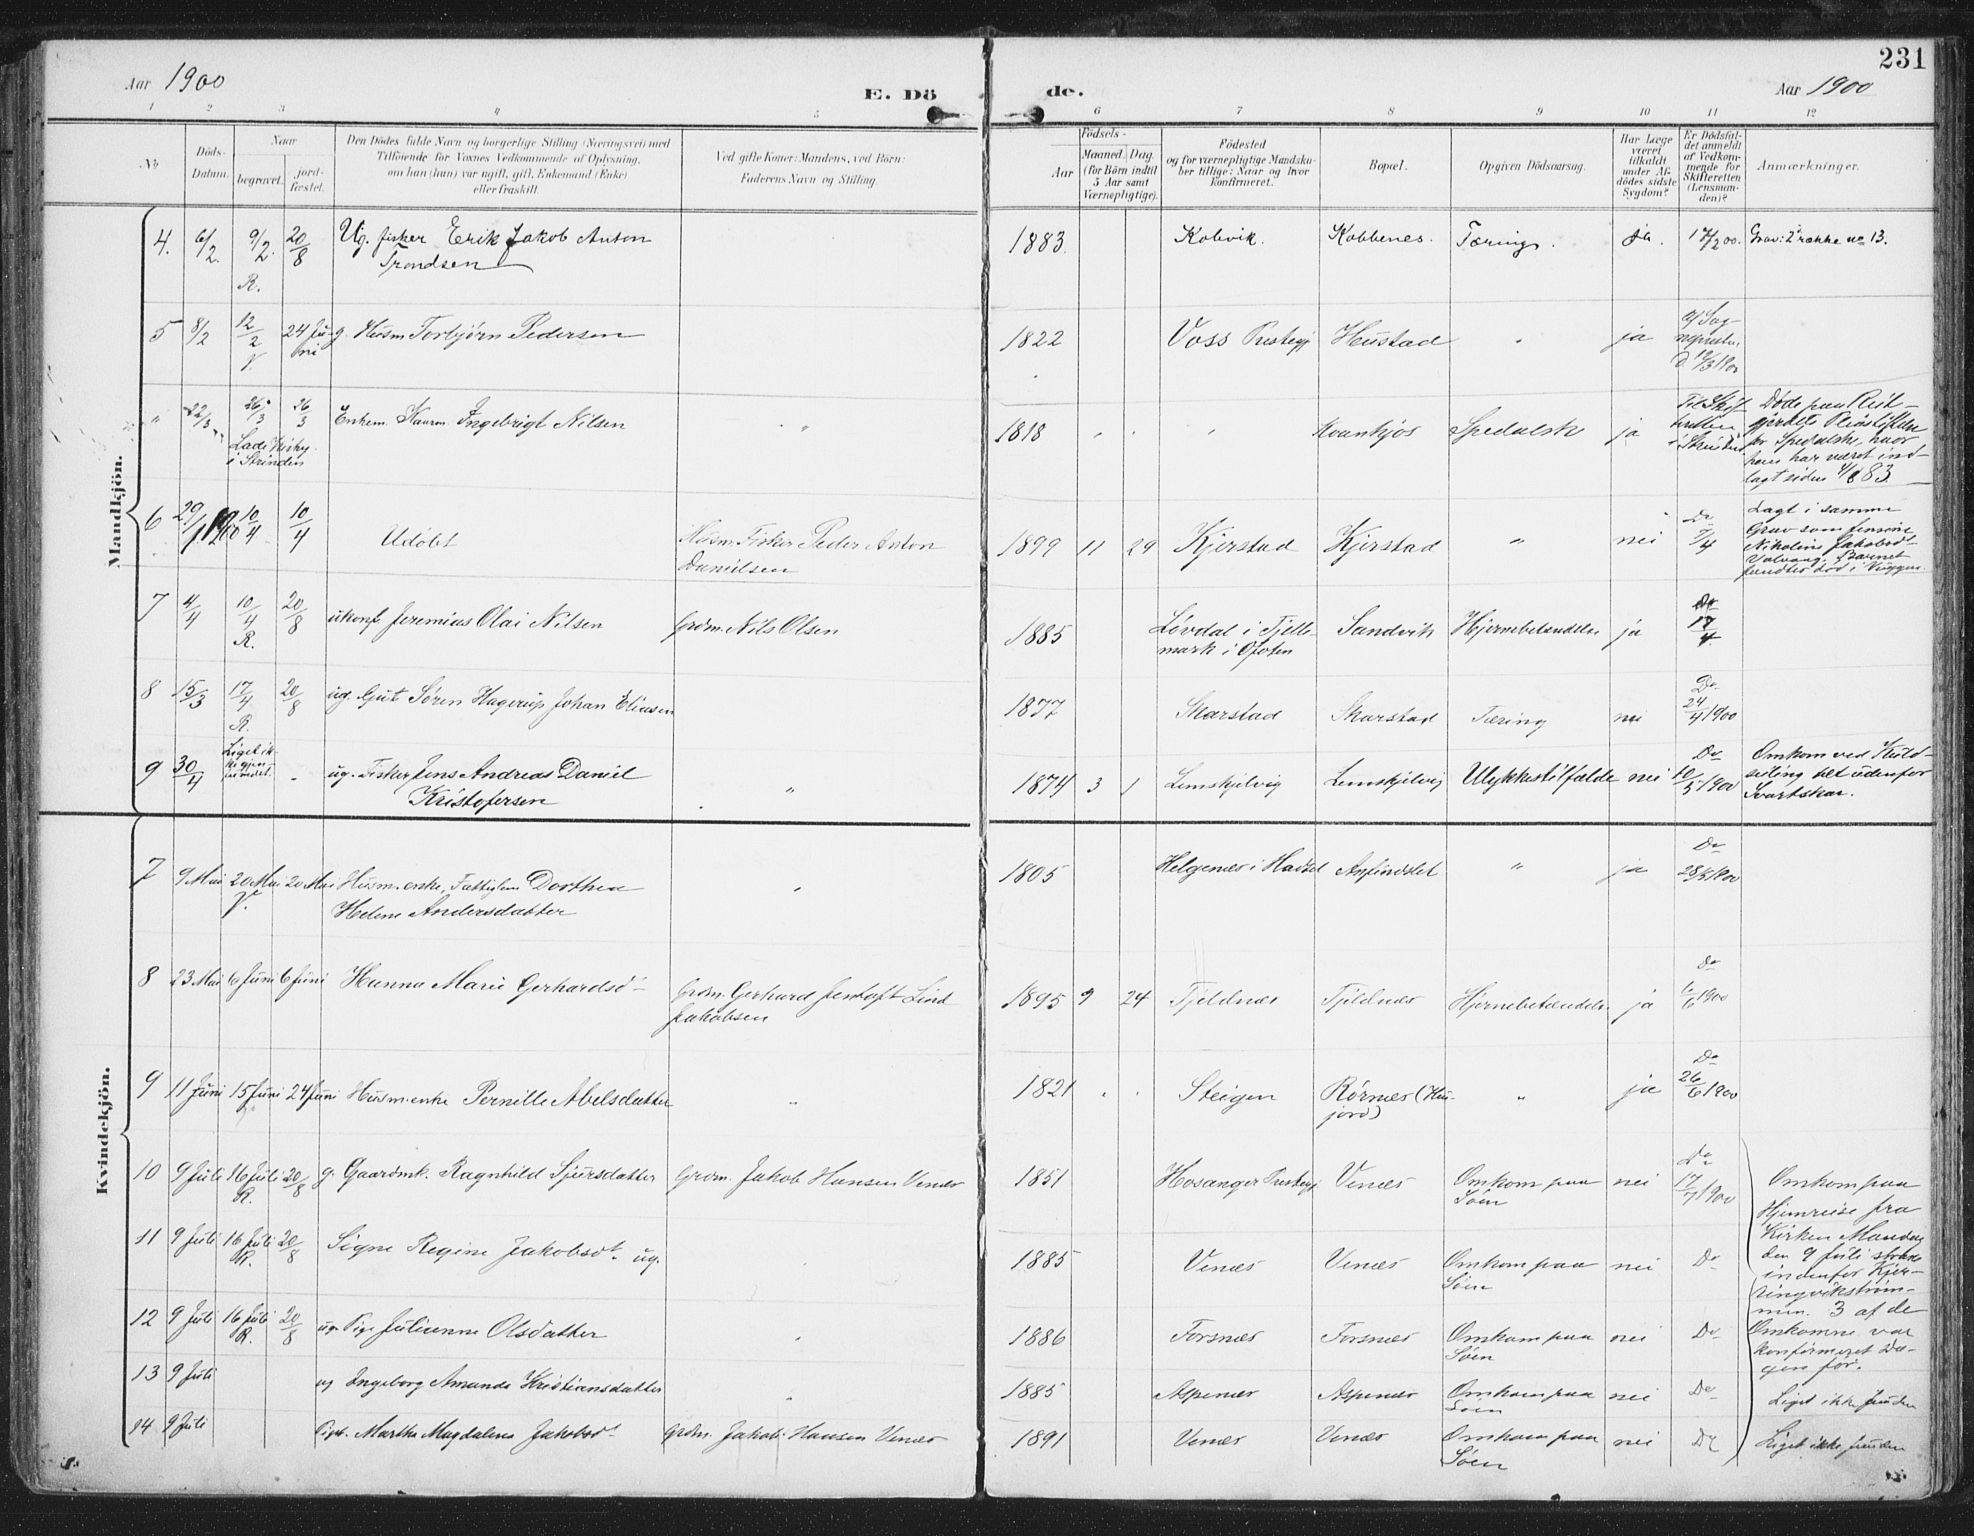 231
Aar 1900
E. Dö
de.
Aar 1900
1 2 3 4 5 6 7 8 9 10 11 12
No
Döds-
Datum.
Naar
begravet.
jord-
fæstet.
Den Dödes fulde Navn og borgerlige Stilling (Næringsvei) med
Tilföiende for Voxnes Vedkommende af Oplysning,
om han (hun) var ugift, gift, Enkemand (Enke)
eller fraskilt.
Ved gifte Koner: Mandens, ved Börn:
Faderens Navn og Stilling.
Födsels-
Aar
Maaned. Dag.
(for Börn indtil
5 Aar samt
Værnepligtige).
Födested
og for værnepligtige Mandska-
ber tillige: Naar og hvor
konfirmeret.
Bopæl.
Opgiven Dödsaarsag.
Har Læge
været
tilkaldt
under Af-
dödes sidste
Sygdom?
Er Dödsfal-
det anmeldt
af Vedkom-
mende for
Skifteretten
(Lensman-
den)?
Anmærkninger.
Mandkjön.
4. 6/2. 9/2. R. 20/8 Ug. fisker Erik Jakob Anton
Trondsen
1883. Kobvik. Kobbenes. Tæring. Ja. 17/2 00. Grav: 2 række no 13.
5 8/2 12/2 V. 24 Juni g. Husm Torbjörn Pedersen
1822 Voss Prestegj Heustad " ja
" 22/3 26/3 26/3 Enkem. Ingebrigt Nilsen "
Lade Kirke
i Strinden
1818 " " " Kvankjos Spedalsk ja
Døde paa Reit-
gjerdets Pleiestiftelse
for Spedalske, hvor
han har været ind-
lagt siden
6 29/1 1900 10/4 10/4 Udöbt
Husm. Fisker Peder Anton
Danielsen
1899 11 29 Kjerstad Kjerstad " nei Do
Lagt i samme
Grav som
Nikoline Jakobsd.
Barnet
fandtes död i Vuggen.
7 4/4 10/4 R. 20/8 ukonf. Jeremias Olai Nilsen Grdm. Nils Olsen
1885 Lövdal i Fjelle-
mark i Ofoten
Sandvik Hjernebetændelse ja Do 17/4.
8 15/3 17/4 R. 20/8 ug. Gut Sören Hagerup Johan Eliasen
1877 Skarstad Skarstad Tæring nei Do 24/4 1900
9 30/4 Liget ik-
ke gjen-
fundet. " ug. Fisker Jens Andreas Daniel
Kristofersen "
1874 3 1 Lemskjelvig Lemskjelvig Ulykkestilfælde nei Do 10/5 1900
Omkom ved Kuld-
seiling tet udenfor
Svartskar.
Kvindekjön.
7 9 Mai 20 Mai V. 20 Mai Husm. enke, Fattiglem Dorthea
Helene Andersdatter "
1805 Helgenes i Anfindslet " ja Do 28/5 1900
8 23 Mai 6 Juni 6 Juni Hanna Marie Gerhardsd-
Grdm. Gerhard Jentoft Lind
Jakobsen
1895 9 24 Tjeldnæs Tjeldnæs Hjernebetændelse ja Do 6/6 1900
9 11 Juni 15 Juni 24 Juni Husm. enke Pernille Abelsdatter "
1821 " " Steigen Rörnæs (Heu-
jord) " ja Do 26/6 1900
10 9 Juli 16 Juli R. 20/8 g. Gaardmk. Ragnhild Sjursdatter Grdm. Jakob Hansen Venæs
1851 Hosanger Prestegj Venæs Omkom paa
Söen nei Do 17/7 1900
11 9 Juli 16 Juli R. 20/8 Signe Regine Jakobsdt. ug.
1885 Venæs Venæs Omkom paa
Söen nei Do
12 9 Juli 16 Juli R. 20/8 ug. Pige Julianne Olsdatter "
1886 Forsnæs Forsnæs Omkom paa
Söen nei Do
13 9 Juli ug Ingeborg Amanda Kristiansdatter "
1885 Aspenæs Aspenæs Omkom paa
Söen nei Do
14 9 Juli Pige. Marthe Magdalena Jakobsdt Grdm. Jakob Hansen Venæs
1891 Venæs Venæs Omkom paa
Söen nei Do
Omkom paa
Hjemreise fra
Kirken Mandag
den 9 Juli
indenfor Kjer-
ringvikström-
men. 3 af de
Omkomne var
konfirmeret Da-
gen för.
Liget ikke funden
Liget ikke funden